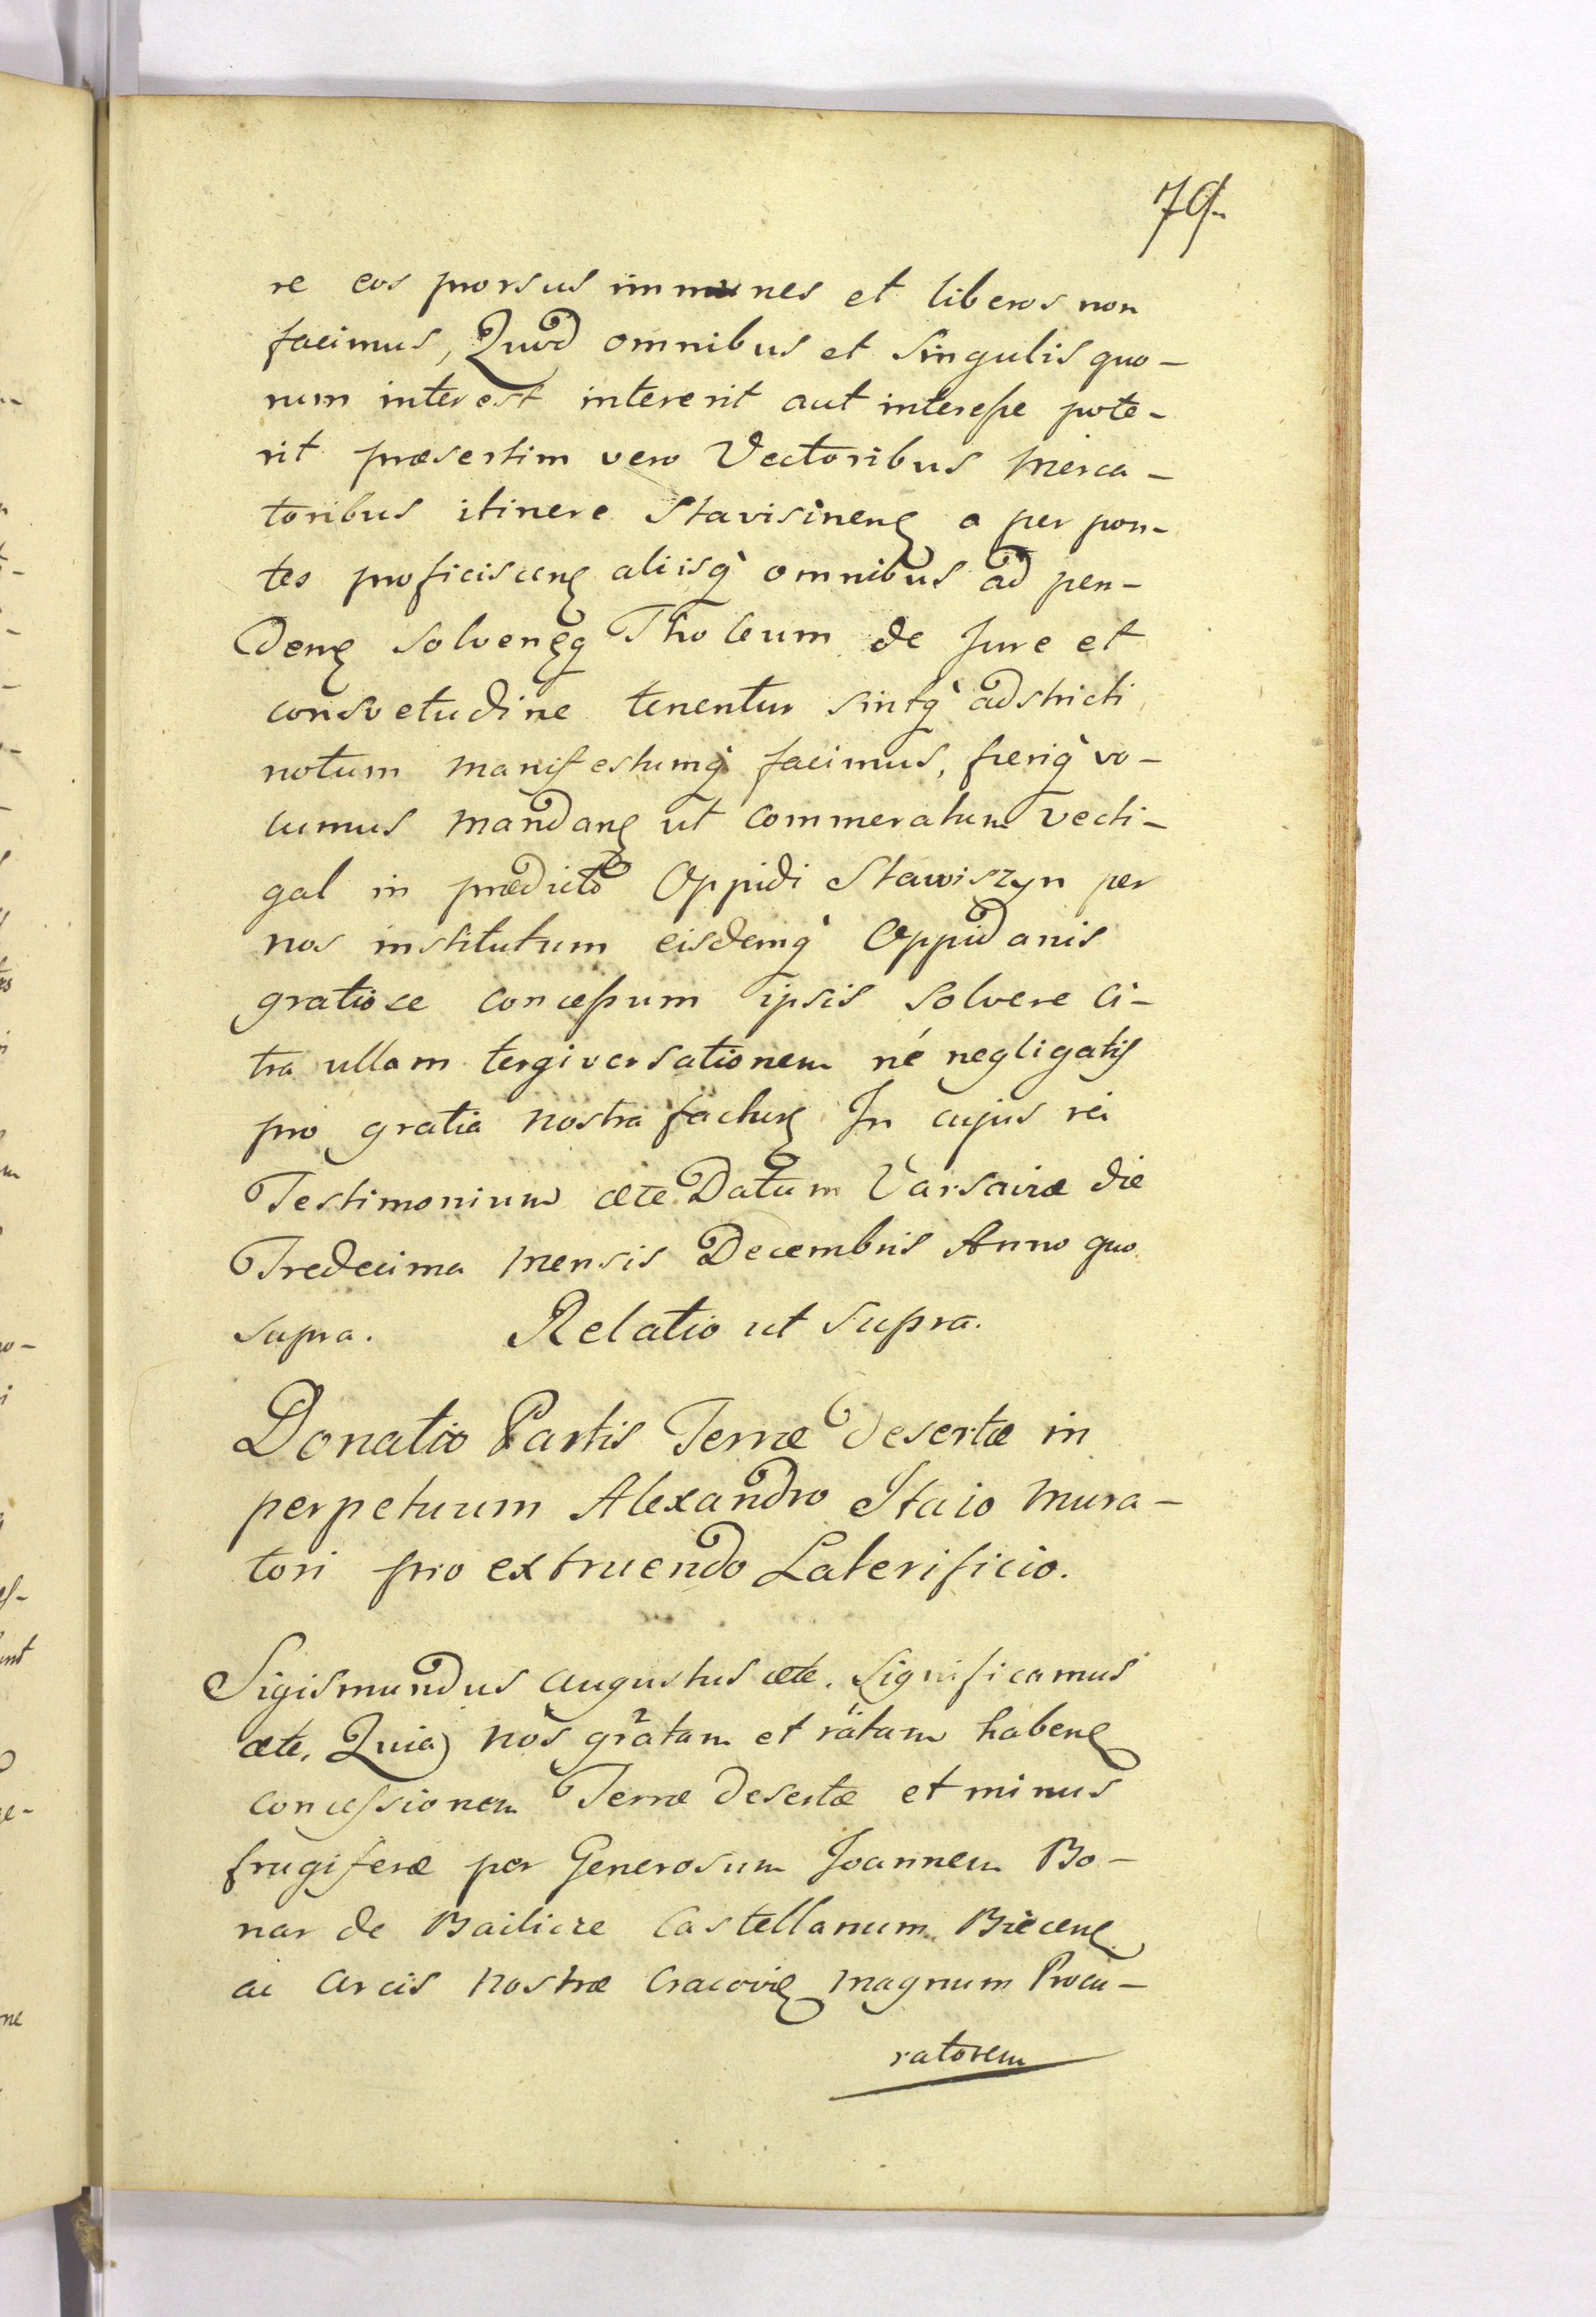 79.
re eos prorsus immunes et liberos non
facimus, Quod omnibus et singulis quo-
rum interest intererit aut interesse pote-
rit præsertim vero Vectoribus Merca-
toribus itinere Stavisinenꝫ a per pon-
tes proficiscenꝫ aliisq̀ omnibus ad pen-
denꝫ solvenꝫq Tholeum de Jure et
consvetudine tenentur sintq̀ adstricti
notum manifestumq̀ facimus, frenq̀ vo-
lumus mandanꝫ ut commeratum vecti-
gal in prædicto Oppidi Stawiszyn per
nos institutum eisdemq̀ Oppidanis
gratiose concessum ipsis solvere ci-
tra ullam tergiversationem né negligatis
pro gratia nostra facturꝫ In cujus rei
Testimonium ætc Datum Varsaviæ die
Tredecima mensis Decembris Anno quo
supra. Relatio ut supra.
Donatio Partis Terræ desertæ in
perpetuum Alexandro Staio Mura-
tori pro extruendo Laterificio.
Sigismundus Augustus ætc. Significamus
ætc. Quia nos gratam et ratam habenꝫ
concessionem Terræ desertæ et minus
frugiferæ per Generosum Joannem Bo-
nar de Bailicze Castellanum Biecenꝫ
ac Arcis nostræ Cracovięꝫ magnum Procu-
ratorem